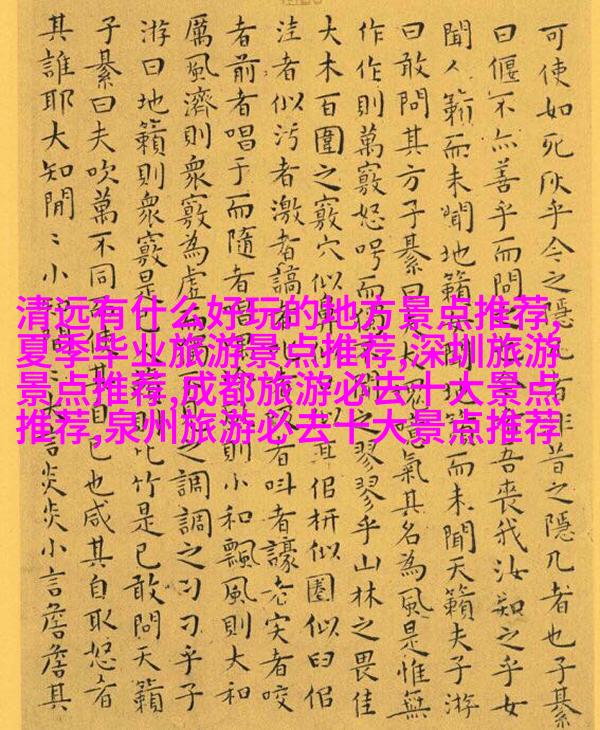 可使如死灰乎今之隱者非昔之隱几者也子綦
曰偃不亦善乎而問之吾喪我汝知之乎女
聞人籟而未聞地籟女聞地籟而未聞天籟夫子游
曰敢問其方子綦曰大塊噫氣其名為風是惟無
作作則萬竅怒呺而獨之翏翏乎山林之畏佳
大木百圍之竅穴似鼻似佀枅似圈似臼佀
洼者似污者激者謞者者叫者譹者宎者咬
者前者唱于而隨者唱則小和飄風則大和
厲風濟則衆竅為虛而之調調之刁刁乎子
游曰地籟則衆竅是已則比竹是已敢問天籟
子綦曰夫吹萬不同而使其自已也咸其自取怒者
其誰耶大知閒〻小言炎炎小言詹詹其
清远有什么好玩的地方景点推荐,
夏季毕业旅游景点推荐,深圳旅游
景点推荐,成都旅游必去十大景点
推荐,泉州旅游必去十大景点推荐